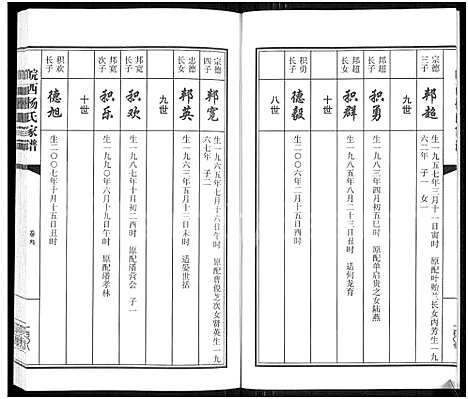 宗德
三子
邦超
生一九五七年三月十一日寅时 原配叶贻兰长女内芳生一九
六二年 子一 女一
九世
邦超
长子
积勇
生一九八三年四月初五巳时 原配单启贵之女陆燕
邦超
长女
积群
生一九八二年八月二十一日卯时 适何龙育
十世
积勇
长子
德毅
生二〇〇六年十月十五日辰时
八世
宗德
四子
邦宽
生一九六五年七月十六日午时 原配曹俊芝次女贤英生一九
六七年 子二
忠德
长女
邦英
生一九六三年五月十三日未时 适晏世括
九世
邦宽
长子
积欢
生一九八七年十月初二酉时 原配潘营会 子一
邦宽
次子
积乐
生一九九〇年六月十九日午时 原配潘孝林
十世
积欢
长子
德旭
生二〇〇七年十月十五日丑时
皖西杨氏家谱
卷